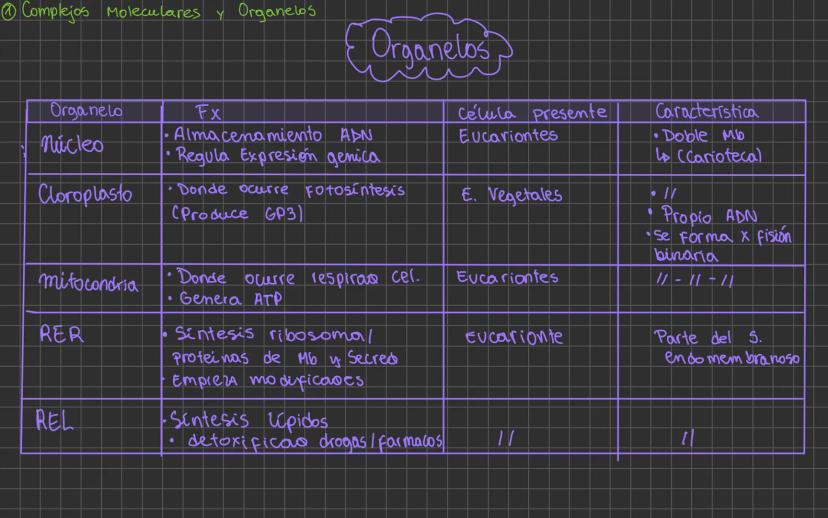 ① Complejos Moleculares y Organelos
Organelos
Organelo Fx Célula presente Característica
Núcleo
• Almacenamiento ADN
• Regula Expresión genica
Eucariontes
• Doble Mb
↳ (Carioteca)
Cloroplasto
• Donde ocurre Fotosíntesis
(Produce GP3)
E. Vegetales
• //
• Propio ADN
• Se Forma x fisión
binaria
Mitocondria
• Donde ocurre respirao cel.
• Genera ATP
Eucariontes
// - // - //
RER
• Síntesis ribosoma/
proteínas de Mb y Secreo
• Empieza modificaoes
Eucarionte
Parte del S.
endomembranoso
REL
• Síntesis lípidos
• detoxificao drogas/farmacos
//
//